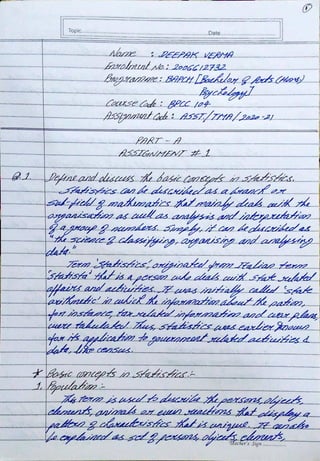 1
Topic
Date
Name : DEEPAK VERMA
Enrolment No : 2005612732
Programme : BAPCH [Bachelor of Arts (Hons)
Psychology]
Course Code : BPCC 104
Assignment Code : ASST/TMA/2020-21
PART - A
ASSIGNMENT # 1
Q.1. Define and discuss the basic concepts in statistics.
Statistics can be described as a branch or
sub-field of mathematics that mainly deals with the
organisation as well as analysis and interpretation
of a group of numbers. Simply, it can be described as
"the science of classifying, organising and analysing
data."
Term 'Statistics' originated from Italian term
'Statista' that is a person who deals with state related
affairs and activities. It was initially called 'state
arithmetic' in which the information about the nation,
for instance, tax related information and war plans,
were tabulated. Thus, statistics was earlier known
for its application to government related activities &
data, like census.
* Basic concepts in Statistics :-
1. Population :-
This term is used to describe the persons, objects,
elements, animals or even reactions that display a
pattern of characteristics that is unique. It can also
be explained as set of persons, objects, elements,
Teacher's Sign